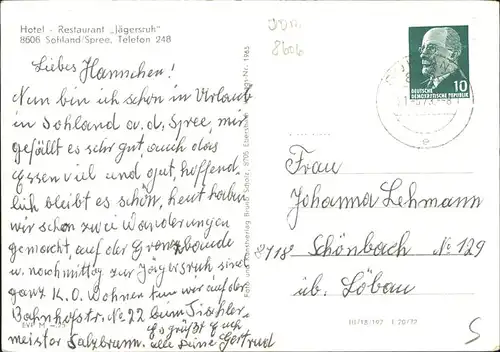 Hotel - Restaurant „Jägersruh"
8606 Sohland/Spree, Telefon 248
Liebes Hannchen!
Nun bin ich schon in Urlaub
in Sohland a. d. Spree, mir
gefällt es sehr gut, auch das
Essen viel und gut, hoffend
lich bleibt es schön, heut haben
wir schon zwei Wanderungen
gemacht, auf der Grenzbaude
u. nachmittag zur Jägersruh sind
ganz K.O. Wohnen tun wir auf der
Bahnhofstr. No 22 beim Tischler
meister Salzbrunn. Es grüßt Euch
alle Deine Gertrud
EVP M
Foto und Kunstverlag Bruno Scholz, 8705 Ebersbach
1965
8606
10
DEUTSCHE
DEMOKRATISCHE REPUBLIK
e
Frau
Johanna Lehmann
8718 Schönbach No 129
üb. Löbau
III/18/197
5